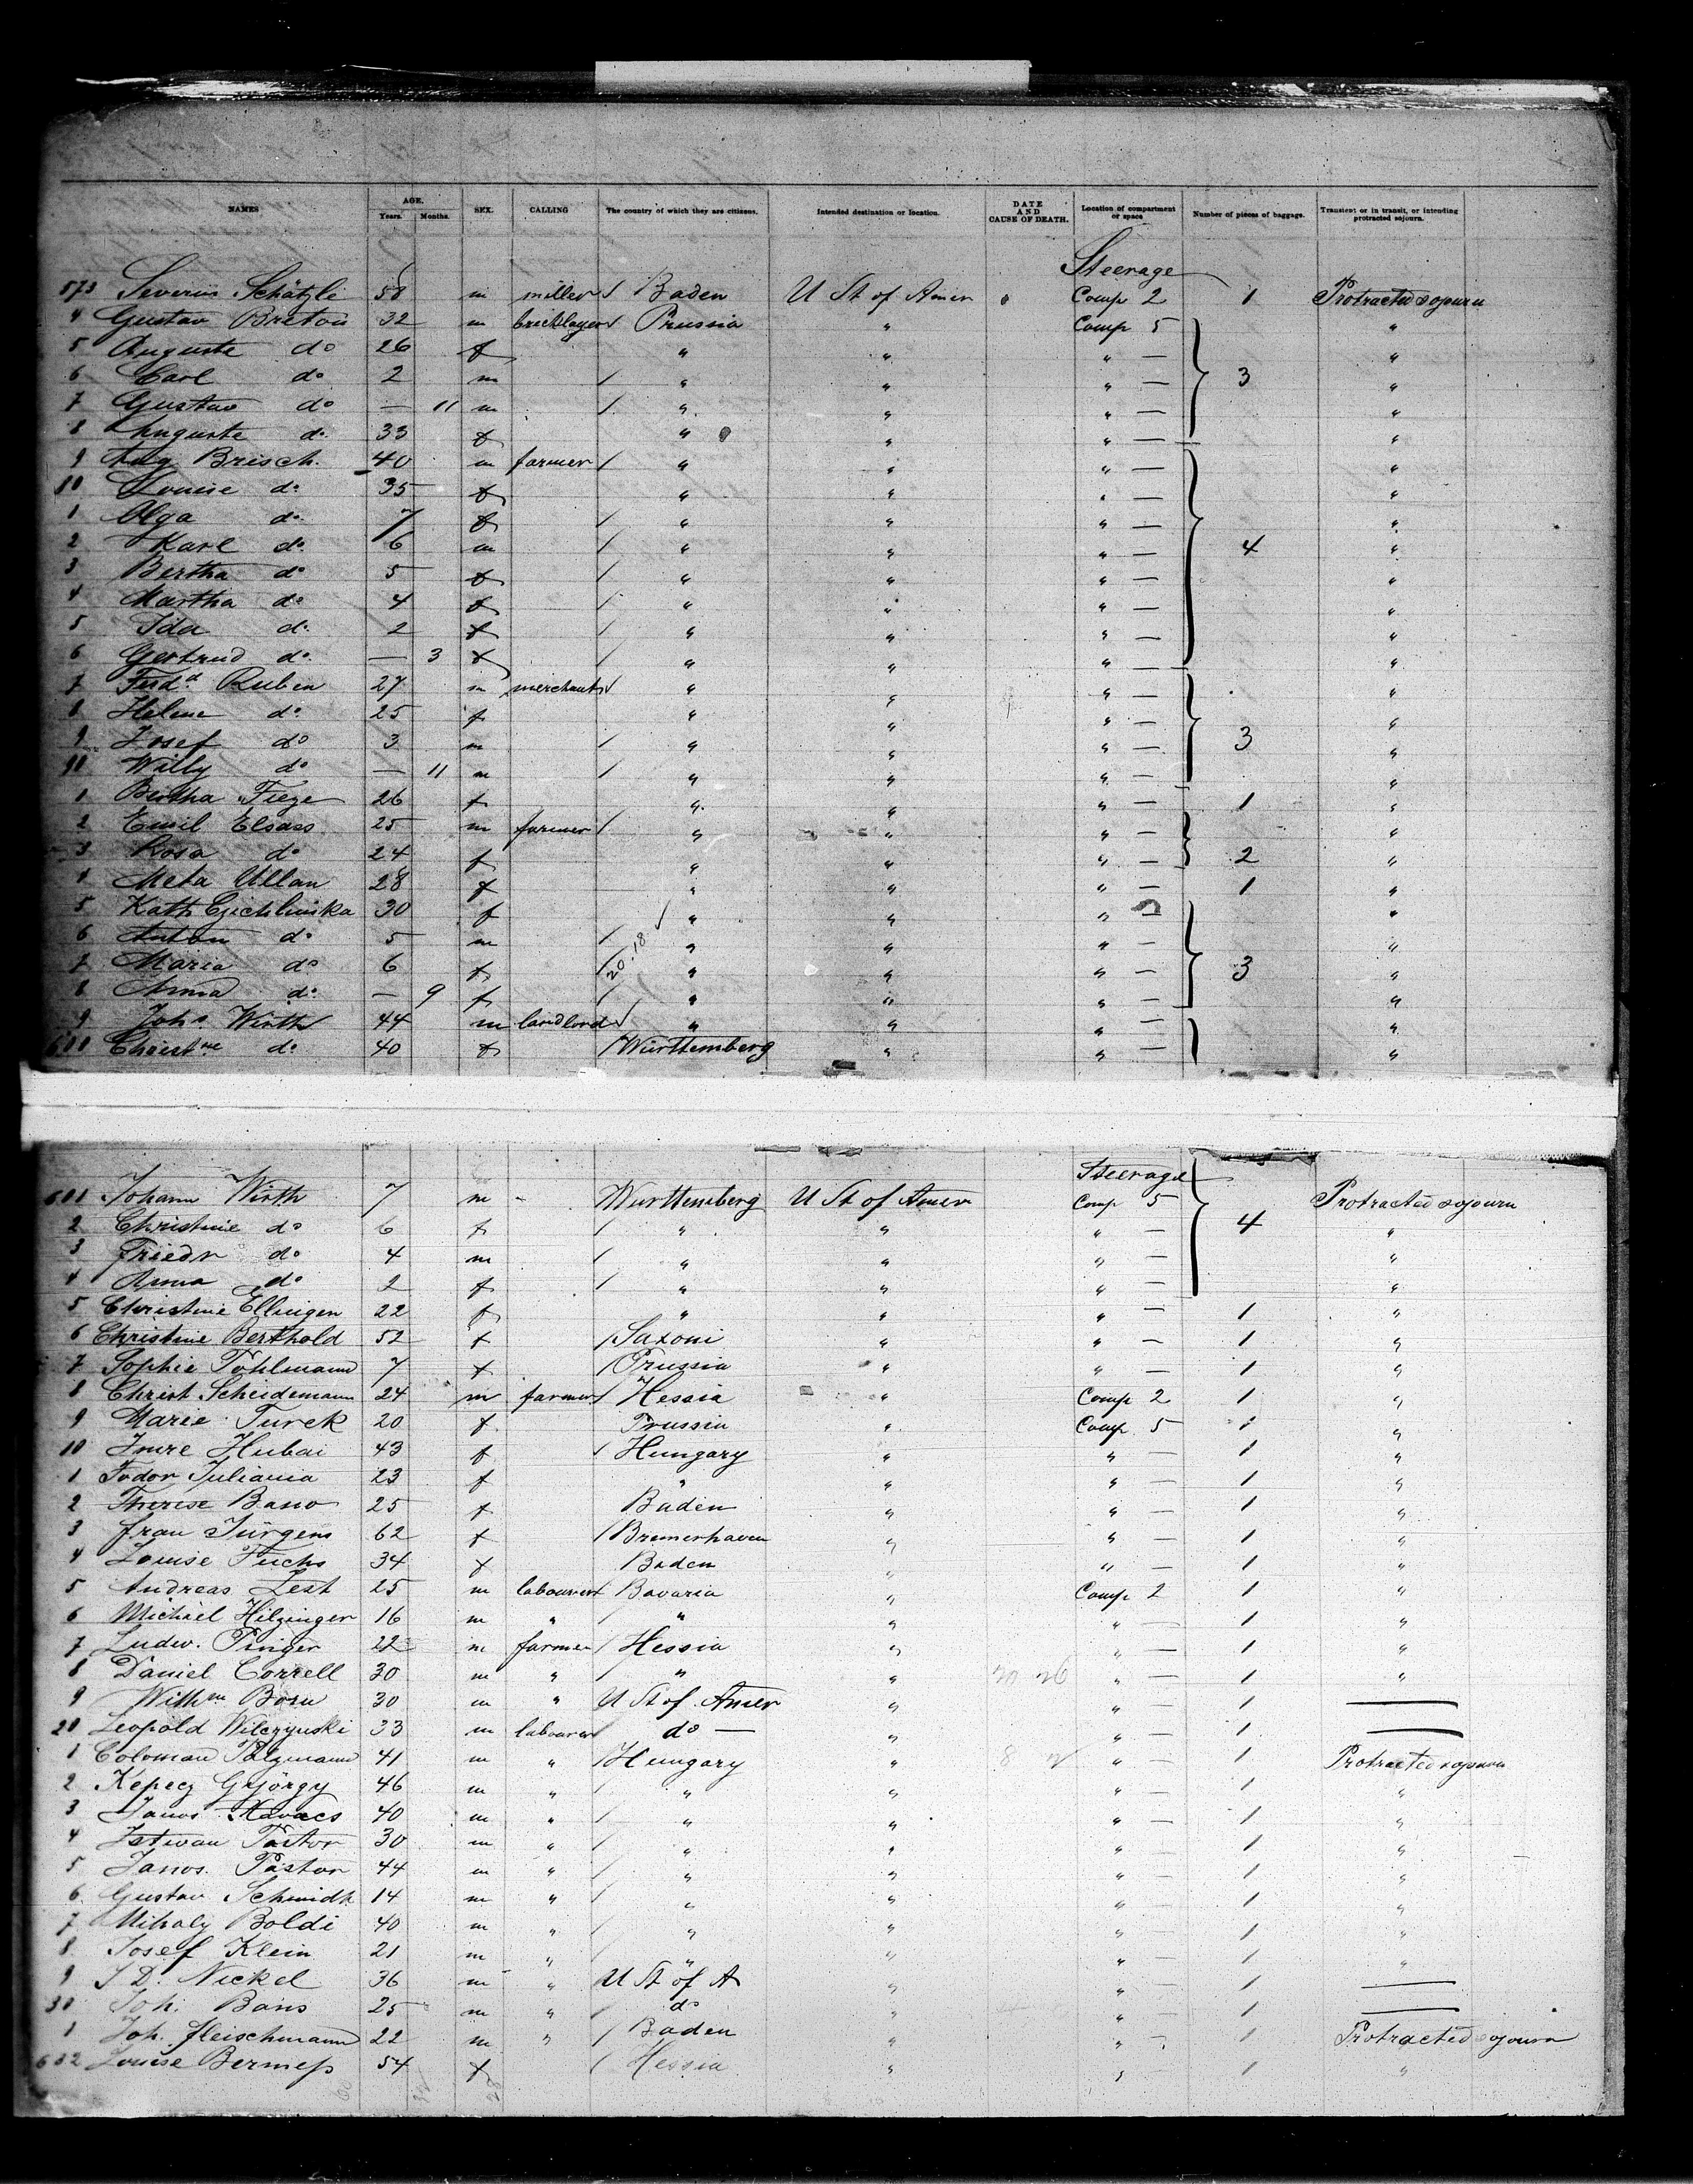 NAMES AGE. Years. Months. SEX. CALLING The country of which they are citizens. Intended destination or location. DATE AND CAUSE OF DEATH. Location of compartment or space Number of pieces of baggage. Transient or in transit, or intending protracted sojourn.
Steerage
573 Severin Schätzle 58 m miller / Baden U St of Amer Comp 2 1 Protracted sojourn
4 Gustav Breton 32 m bricklayer / Prussia " Comp 5 "
5 Auguste do 26 f " " " — "
6 Carl do 2 m / " " " — 3 "
7 Gustav do — 11 m / " " " — "
8 Auguste do 33 f " " " — "
9 Aug Brisch 40 m farmer / " " " — "
10 Louise do 35 f " " " — "
1 Olga do 7 f / " " " — "
2 Karl do 6 m / " " " — 4 "
3 Bertha do 5 f / " " " — "
4 Martha do 4 f / " " " — "
5 Ida do 2 f / " " " — "
6 Gertrud do — 3 f / " " " — "
7 Ferdd Ruben 27 m merchant / " " " — "
8 Helene do 25 f " " " — "
9 Josef do 3 m / " " " — 3 "
90 Willy do — 11 m / " " " — "
1 Bertha Fiege 26 f " " " — 1 "
2 Emil Elsass 25 m farmer / " " " — "
3 Rosa do 24 f " " " — 2 "
4 Meta Ullan 28 f " " " — 1 "
5 Kath 30 f " " " — "
6 Anton do 5 m / " " " — "
7 Maria do 6 f / 20.18 " " " — 3 "
8 Anna do — 9 f / " " " — "
9 Johs Wirth 44 m landlord / " " " — "
600 Christne do 40 f / Württemberg " " — "
Steerage
601 Johann Wirth 7 m - Württemberg U St of Amer Comp 5 Protracted sojourn
2 Christine do 6 f / " " " — 4 "
3 Friedr do 4 m / " " " — "
4 Anna do 2 f / " " " — "
5 Christine Ellingen 22 f " " " — 1 "
6 Christine Berthold 52 f / Saxoni " " — 1 "
7 Sophie Pohlmann 7 f / Prussia " " — 1 "
8 Christ Scheidemann 24 m farmer / Hessia " Comp 2 1 "
9 Marie Turek 20 f Prussia " Comp 5 1 "
10 Imre Hubai 43 f / Hungary " " — 1 "
1 Fodor Juliania 23 f " " " — 1 "
2 Therese Bano 25 f Baden " " — 1 "
3 Frau Jürgens 62 f / Bremerhaven " " — 1 "
4 Louise Fuchs 34 f Baden " " — 1 "
5 Andreas Lest 25 m labourer / Bavaria " Comp 2 1 "
6 Michael Hilzinger 16 m " / " " " — 1 "
7 Ludw. Pinger 22 m farmer / Hessia " " — 1 "
8 Daniel Correll 30 m " / " " " — 1 "
9 Withm Born 30 m " U St of Amer " " — 1 —
20 Leopold Wilczynski 33 m labourer do — " " — 1 —
1 Coloman Polzmann 41 m " / Hungary " " — 1 Protracted sojourn
2 Kepecz György 46 m " / " " " — 1 "
3 Janos Kovacs 40 m " / " " " — 1 "
4 Istwan Pastor 30 m " / " " " — 1 "
5 Janos Pastor 44 m " / " " " — 1 "
6 Gustav Schmidt 14 m " / " " " — 1 "
7 Mihaly Boldi 40 m " / " " " — 1 "
8 Josef Klein 21 m " / " " " — 1 "
9 J D. Nickel 36 m " U St of A " " — 1 —
30 Joh. Bans 25 m " / do " " — 1 —
1 Joh. Fleischmann 22 m " / Baden " " — 1 Protracted sojourn
632 Louise 54 f / Hessia " " 1 "